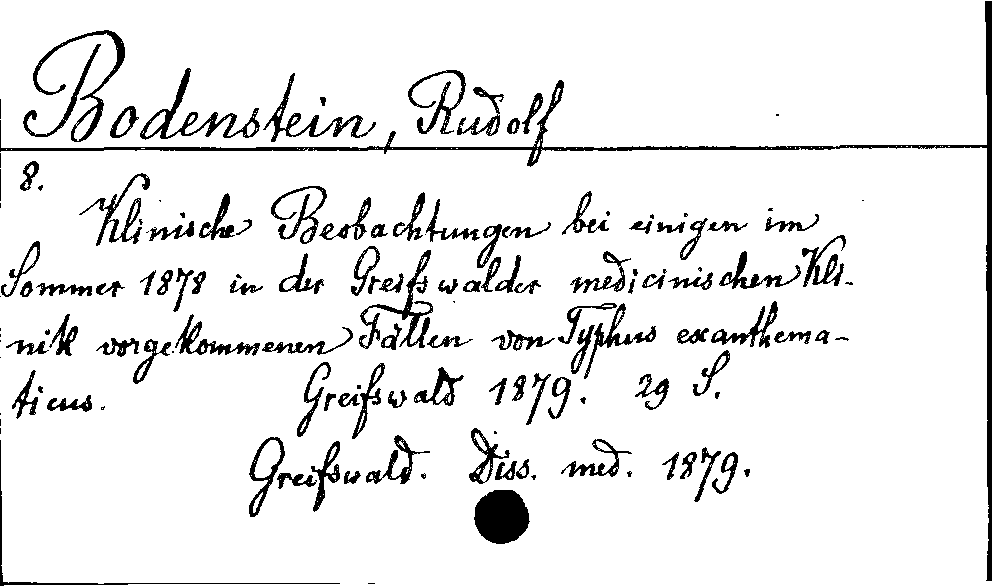 Bodenstein, Rudolf
8.
Klinische Beobachtungen bei einigen im
Sommer 1878 in der Greifswalder medicinischen Kli-
nik vorgekommenen Fällen von Typhus exanthema-
ticus. Greifswald 1879. 29 S.
Greifswald. Diss. med. 1879.